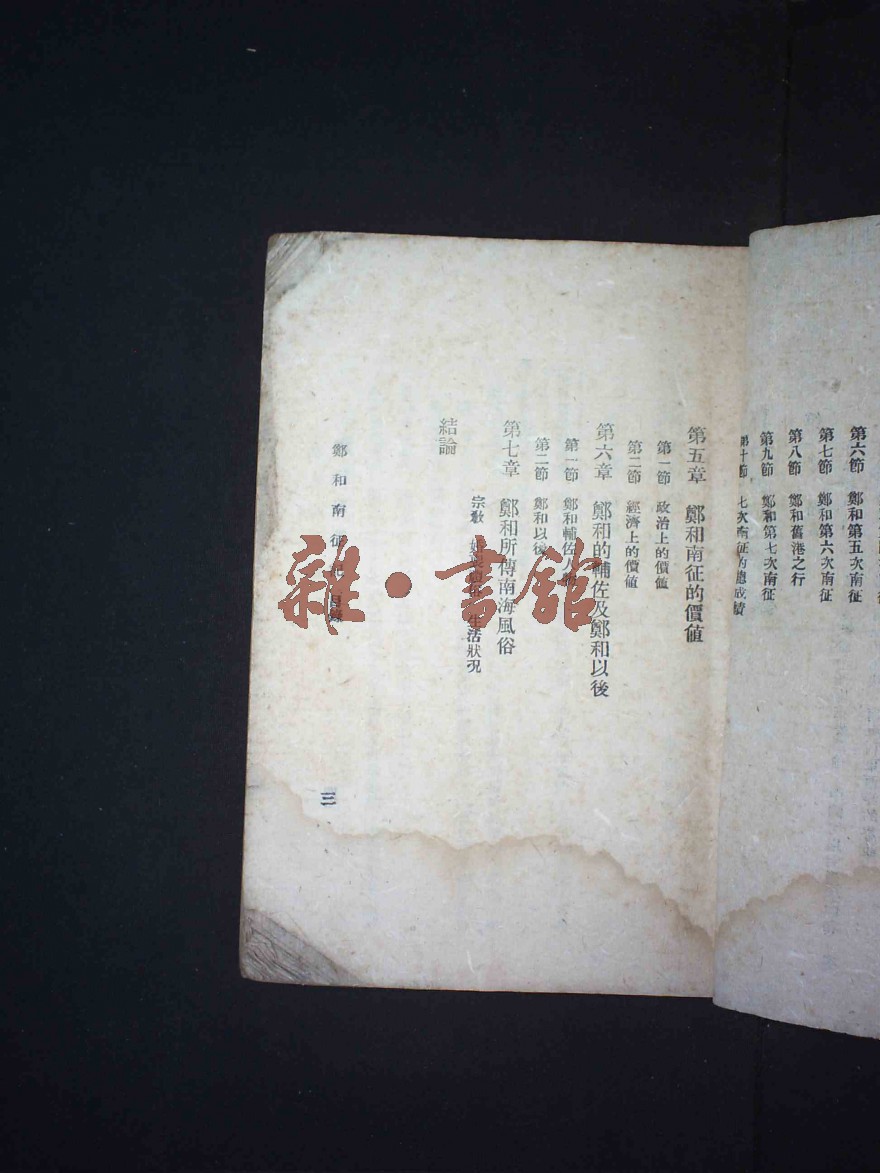 第六節　鄭和第五次南征
第七節　鄭和第六次南征
第八節　鄭和舊港之行
第九節　鄭和第七次南征
第十節　七次南征的總成績
第五章　鄭和南征的價值
第一節　政治上的價值
第二節　經濟上的價值
第六章　鄭和的輔佐及鄭和以後
第一節　鄭和輔佐人
第二節　鄭和以後
第七章　鄭和所傳南海風俗
宗教　生活狀況
結論
鄭和南征記　目錄
三
雜·書館